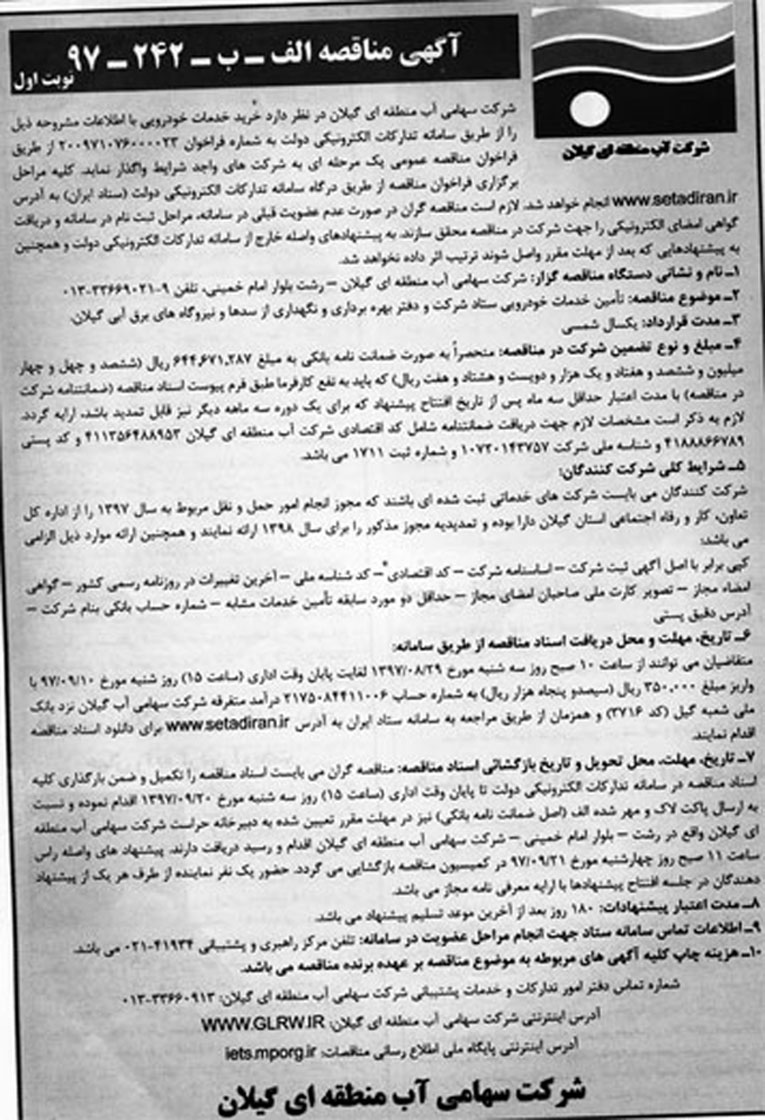 آگهی مناقصه الف ـ ب ـ ۲۴۲ ـ ۹۷
نوبت اول
شرکت آب منطقه ای گیلان
شرکت سهامی آب منطقه ای گیلان در نظر دارد خرید خدمات خودرویی با اطلاعات مشروحه ذیل
را از طریق سامانه تدارکات الکترونیکی دولت به شماره فراخوان ۲۰۰۹۷۱۰۷۶۰۰۰۰۲۳ از طریق
فراخوان مناقصه عمومی یک مرحله ای به شرکت های واجد شرایط واگذار نماید. کلیه مراحل
برگزاری فراخوان مناقصه از طریق درگاه سامانه تدارکات الکترونیکی دولت (ستاد ایران) به آدرس
www.setadiran.ir انجام خواهد شد. لازم است مناقصه گران در صورت عدم عضویت قبلی در سامانه، مراحل ثبت نام در سامانه و دریافت
گواهی امضای الکترونیکی را جهت شرکت در مناقصه محقق سازند. به پیشنهادهای واصله خارج از سامانه تدارکات الکترونیکی دولت و همچنین
به پیشنهادهایی که بعد از مهلت مقرر واصل شوند ترتیب اثر داده نخواهد شد.
۱ـ نام و نشانی دستگاه مناقصه گزار: شرکت سهامی آب منطقه ای گیلان – رشت بلوار امام خمینی، تلفن ۹-۳۳۶۶۹۰۲۱-۰۱۳
۲ـ موضوع مناقصه: تأمین خدمات خودرویی ستاد شرکت و دفتر بهره برداری و نگهداری از سدها و نیروگاه های برق آبی گیلان.
۳ـ مدت قرارداد: یکسال شمسی
۴ـ مبلغ و نوع تضمین شرکت در مناقصه: منحصراً به صورت ضمانت نامه بانکی به مبلغ ۶۴۴,۶۷۱,۲۸۷ ریال (ششصد و چهل و چهار
میلیون و ششصد و هفتاد و یک هزار و دویست و هشتاد و هفت ریال) که باید به نفع کارفرما طبق فرم پیوست اسناد مناقصه (ضمانتنامه شرکت
در مناقصه) با مدت اعتبار حداقل سه ماه پس از تاریخ افتتاح پیشنهاد که برای یک دوره سه ماهه دیگر نیز قابل تمدید باشد، ارایه گردد.
لازم به ذکر است مشخصات لازم جهت دریافت ضمانتنامه شامل کد اقتصادی شرکت آب منطقه ای گیلان ۴۱۱۳۵۶۴۸۸۹۵۳ و کد پستی
۴۱۸۸۸۶۶۷۸۹ و شناسه ملی شرکت ۱۰۷۲۰۱۴۳۷۵۷ و شماره ثبت ۱۷۱۱ می باشد.
۵ـ شرایط کلی شرکت کنندگان:
شرکت کنندگان می بایست شرکت های خدماتی ثبت شده ای باشند که مجوز انجام امور حمل و نقل مربوط به سال ۱۳۹۷ را از اداره کل
تعاون، کار و رفاه اجتماعی استان گیلان دارا بوده و تمدیدیه مجوز مذکور را برای سال ۱۳۹۸ ارائه نمایند و همچنین ارائه موارد ذیل الزامی
می باشد:
کپی برابر با اصل آگهی ثبت شرکت – اساسنامه شرکت – کد اقتصادی – کد شناسه ملی – آخرین تغییرات در روزنامه رسمی کشور – گواهی
امضاء مجاز – تصویر کارت ملی صاحبان امضای مجاز – حداقل دو مورد سابقه تأمین خدمات مشابه – شماره حساب بانکی بنام شرکت –
آدرس دقیق پستی
۶ـ تاریخ، مهلت و محل دریافت اسناد مناقصه از طریق سامانه:
متقاضیان می توانند از ساعت ۱۰ صبح روز سه شنبه مورخ ۱۳۹۷/۰۸/۲۹ لغایت پایان وقت اداری (ساعت ۱۵) روز شنبه مورخ ۹۷/۰۹/۱۰ با
واریز مبلغ ۳۵۰,۰۰۰ ریال (سیصدو پنجاه هزار ریال) به شماره حساب ۲۱۷۵۰۸۴۴۱۱۰۰۶ درآمد متفرقه شرکت سهامی آب گیلان نزد بانک
ملی شعبه گیل (کد ۳۷۱۶) و همزمان از طریق مراجعه به سامانه ستاد ایران به آدرس www.setadiran.ir برای دانلود اسناد مناقصه
اقدام نمایند.
۷ـ تاریخ، مهلت، محل تحویل و تاریخ بازگشائی اسناد مناقصه: مناقصه گران می بایست اسناد مناقصه را تکمیل و ضمن بارگذاری کلیه
اسناد مناقصه در سامانه تدارکات الکترونیکی دولت تا پایان وقت اداری (ساعت ۱۵) روز سه شنبه مورخ ۱۳۹۷/۰۹/۲۰ اقدام نموده و نسبت
به ارسال پاکت لاک و مهر شده الف (اصل ضمانت نامه بانکی) نیز در مهلت مقرر تعیین شده به دبیرخانه حراست شرکت سهامی آب منطقه
ای گیلان واقع در رشت – بلوار امام خمینی – شرکت سهامی آب منطقه ای گیلان اقدام و رسید دریافت دارند. پیشنهاد های واصله راس
ساعت ۱۱ صبح روز چهارشنبه مورخ ۹۷/۰۹/۲۱ در کمیسیون مناقصه بازگشایی می گردد. حضور یک نفر نماینده از طرف هر یک از پیشنهاد
دهندگان در جلسه افتتاح پیشنهادها با ارایه معرفی نامه مجاز می باشد.
۸ـ مدت اعتبار پیشنهادات: ۱۸۰ روز بعد از آخرین موعد تسلیم پیشنهاد می باشد.
۹ـ اطلاعات تماس سامانه ستاد جهت انجام مراحل عضویت در سامانه: تلفن مرکز راهبری و پشتیبانی ۴۱۹۳۴-۰۲۱ می باشد.
۱۰ـ هزینه چاپ کلیه آگهی های مربوطه به موضوع مناقصه بر عهده برنده مناقصه می باشد.
شماره تماس دفتر امور تدارکات و خدمات پشتیبانی شرکت سهامی آب منطقه ای گیلان: ۳۳۶۶۰۹۱۳-۰۱۳
آدرس اینترنتی شرکت سهامی آب منطقه ای گیلان: WWW.GLRW.IR
آدرس اینترنتی پایگاه ملی اطلاع رسانی مناقصات: iets.mporg.ir
شرکت سهامی آب منطقه ای گیلان